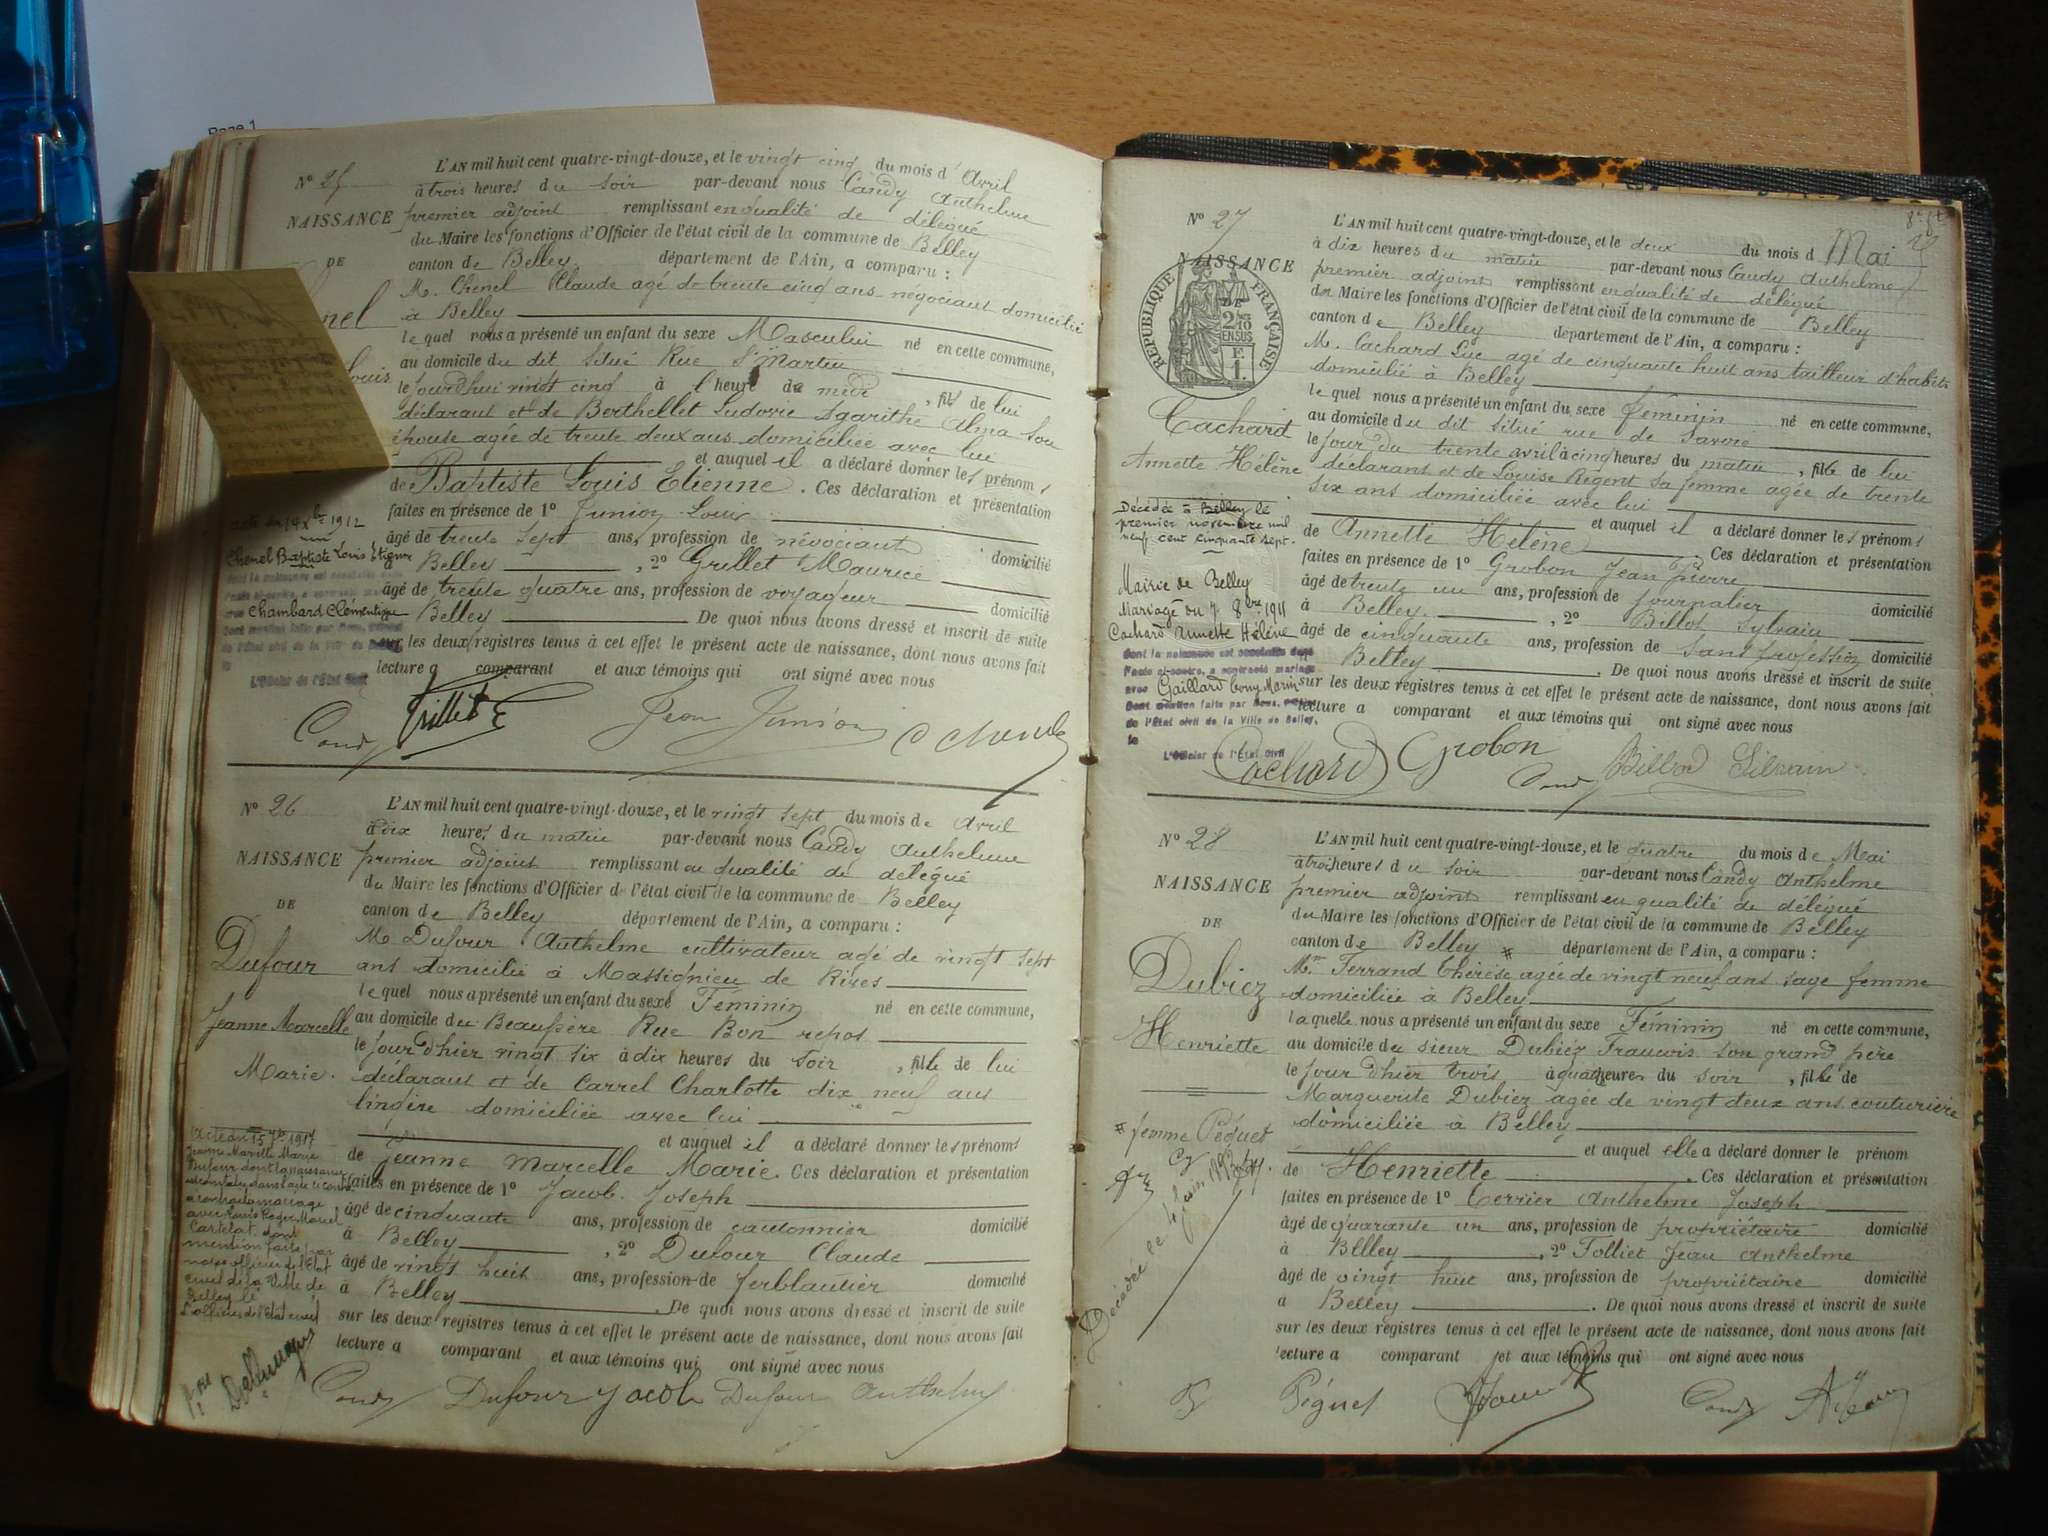 Page 1
N° 25
NAISSANCE
DE
nel
Louis
L'AN mil huit cent quatre-vingt-douze, et le vingt cinq du mois d'Avril
à trois heures du soir par-devant nous Candy Anthelme
premier adjoint remplissant en qualité de délégué
du Maire les fonctions d'Officier de l'état civil de la commune de Belley
canton de Belley département de l'Ain, a comparu :
M. Chenel Claude agé de trente cinq ans négociant domicilié
à Belley
le quel nous a présenté un enfant du sexe Masculin né en cette commune,
au domicile du dit situé Rue St Martin
le jourd'hui vingt cinq à l'heure de midi, fils de lui
déclarant et de Berthellet Ludovie Agarithe Alma son
épouse agée de trente deux ans domiciliée avec lui
et auquel il a déclaré donner les prénoms
de Baptiste Louis Etienne. Ces déclaration et présentation
faites en présence de 1° Junion Louis
âgé de trente sept ans, profession de négociant domicilié
Belley, 2° Grillet Maurice
âgé de trente quatre ans, profession de voyageur domicilié
Belley De quoi nous avons dressé et inscrit de suite
sur les deux registres tenus à cet effet le présent acte de naissance, dont nous avons fait
lecture a comparant et aux témoins qui ont signé avec nous
acte du 14 Xbre 1912
Chenel Baptiste Louis Etienne
Chambard Clémentine
L'Officier de l'État Civil
Candy Grillet Jean Junion C Chenel
N° 26
NAISSANCE
DE
Dufour
Jeanne Marcelle
Marie.
L'AN mil huit cent quatre-vingt-douze, et le vingt sept du mois de Avril
à dix heures du matin par-devant nous Candy Anthelme
premier adjoint remplissant en qualité de délégué
du Maire les fonctions d'Officier de l'état civil de la commune de Belley
canton de Belley département de l'Ain, a comparu :
M Dufour Anthelme cultivateur agé de vingt sept
ans domicilié à Massignieu de Rives
le quel nous a présenté un enfant du sexe Féminin né en cette commune,
au domicile du Beaupère Rue Bon repos
le jour d'hier vingt six à dix heures du soir, fille de lui
déclarant et de Carrel Charlotte dix neuf ans
lingère domiciliée avec lui
et auquel il a déclaré donner les prénoms
de Jeanne Marcelle Marie. Ces déclaration et présentation
faites en présence de 1° Jacob Joseph
âgé de cinquante ans, profession de cantonnier domicilié
à Belley, 2° Dufour Claude
âgé de vingt huit ans, profession de ferblantier domicilié
à Belley. De quoi nous avons dressé et inscrit de suite
sur les deux registres tenus à cet effet le présent acte de naissance, dont nous avons fait
lecture a comparant et aux témoins qui ont signé avec nous
1917
Jeanne Marcelle Marie
Dufour dont la naissance
a contracté mariage
avec Louis Roger Marcel
Castelat dont
mention faite par
nous officier de l'Etat
civil de la Ville de
Belley le
L'officier de l'état civil
Candy Dufour Jacob Dufour Anthelme
N° 27
NAISSANCE
DE
RÉPUBLIQUE FRANÇAISE
2/10
EN SUS
F.
1.
Cachard
Annette Hélène
L'AN mil huit cent quatre-vingt-douze, et le deux du mois d Mai
à dix heures du matin par-devant nous Candy Anthelme
premier adjoint remplissant en qualité de délégué
du Maire les fonctions d'Officier de l'état civil de la commune de Belley
canton de Belley département de l'Ain, a comparu :
M. Cachard Luc agé de cinquante huit ans tailleur d'habits
domicilié à Belley
le quel nous a présenté un enfant du sexe Féminin né en cette commune,
au domicile du dit situé rue de Savoie
le jour du trente avril à cinq heures du matin, fille de lui
déclarant et de Louise Regent sa femme agée de trente
six ans domiciliée avec lui
et auquel il a déclaré donner les prénoms
de Annette Hélène. Ces déclaration et présentation
faites en présence de 1° Grobon Jean Pierre
âgé de trente un ans, profession de journalier domicilié
à Belley, 2° Billot Sylvain
âgé de cinquante ans, profession de sans profession domicilié
Belley. De quoi nous avons dressé et inscrit de suite
sur les deux registres tenus à cet effet le présent acte de naissance, dont nous avons fait
lecture a comparant et aux témoins qui ont signé avec nous
Décédée à Belley le
premier novembre mil
neuf cent cinquante sept.
Mairie de Belley
Mariage du 7 8bre 1911
Cachard Annette Hélène
dont la naissance est constatée dans
l'acte ci-contre, a contracté mariage
avec Gaillard Tony Marin
Dont mention faite par Nous, officier
de l'État civil de la Ville de Belley,
le
L'Officier de l'État Civil
Cachard Grobon Candy Billod Silvain
N° 28
NAISSANCE
DE
Dubiez
Henriette
L'AN mil huit cent quatre-vingt-douze, et le quatre du mois de Mai
à trois heures du soir par-devant nous Candy Anthelme
premier adjoint remplissant en qualité de délégué
du Maire les fonctions d'Officier de l'état civil de la commune de Belley
canton de Belley département de l'Ain, a comparu :
Mme Ferrand Thérèse agée de vingt neuf ans sage femme
domiciliée à Belley
laquelle nous a présenté un enfant du sexe Féminin né en cette commune,
au domicile du sieur Dubiez François son grand père
le jour d'hier trois à quatre heures du soir, fille de
Marguerite Dubiez agée de vingt deux ans couturière
domiciliée à Belley
et auquel elle a déclaré donner le prénom
de Henriette. Ces déclaration et présentation
faites en présence de 1° Terrier Anthelme Joseph
âgé de quarante un ans, profession de propriétaire domicilié
à Bllley, 2° Folliet Jean Anthelme
âgé de vingt huit ans, profession de propriétaire domicilié
a Belley. De quoi nous avons dressé et inscrit de suite
sur les deux registres tenus à cet effet le présent acte de naissance, dont nous avons fait
lecture a comparant et aux témoins qui ont signé avec nous
# femme Péguet
Décédée le 4 Juin 1892
Péguet Candy